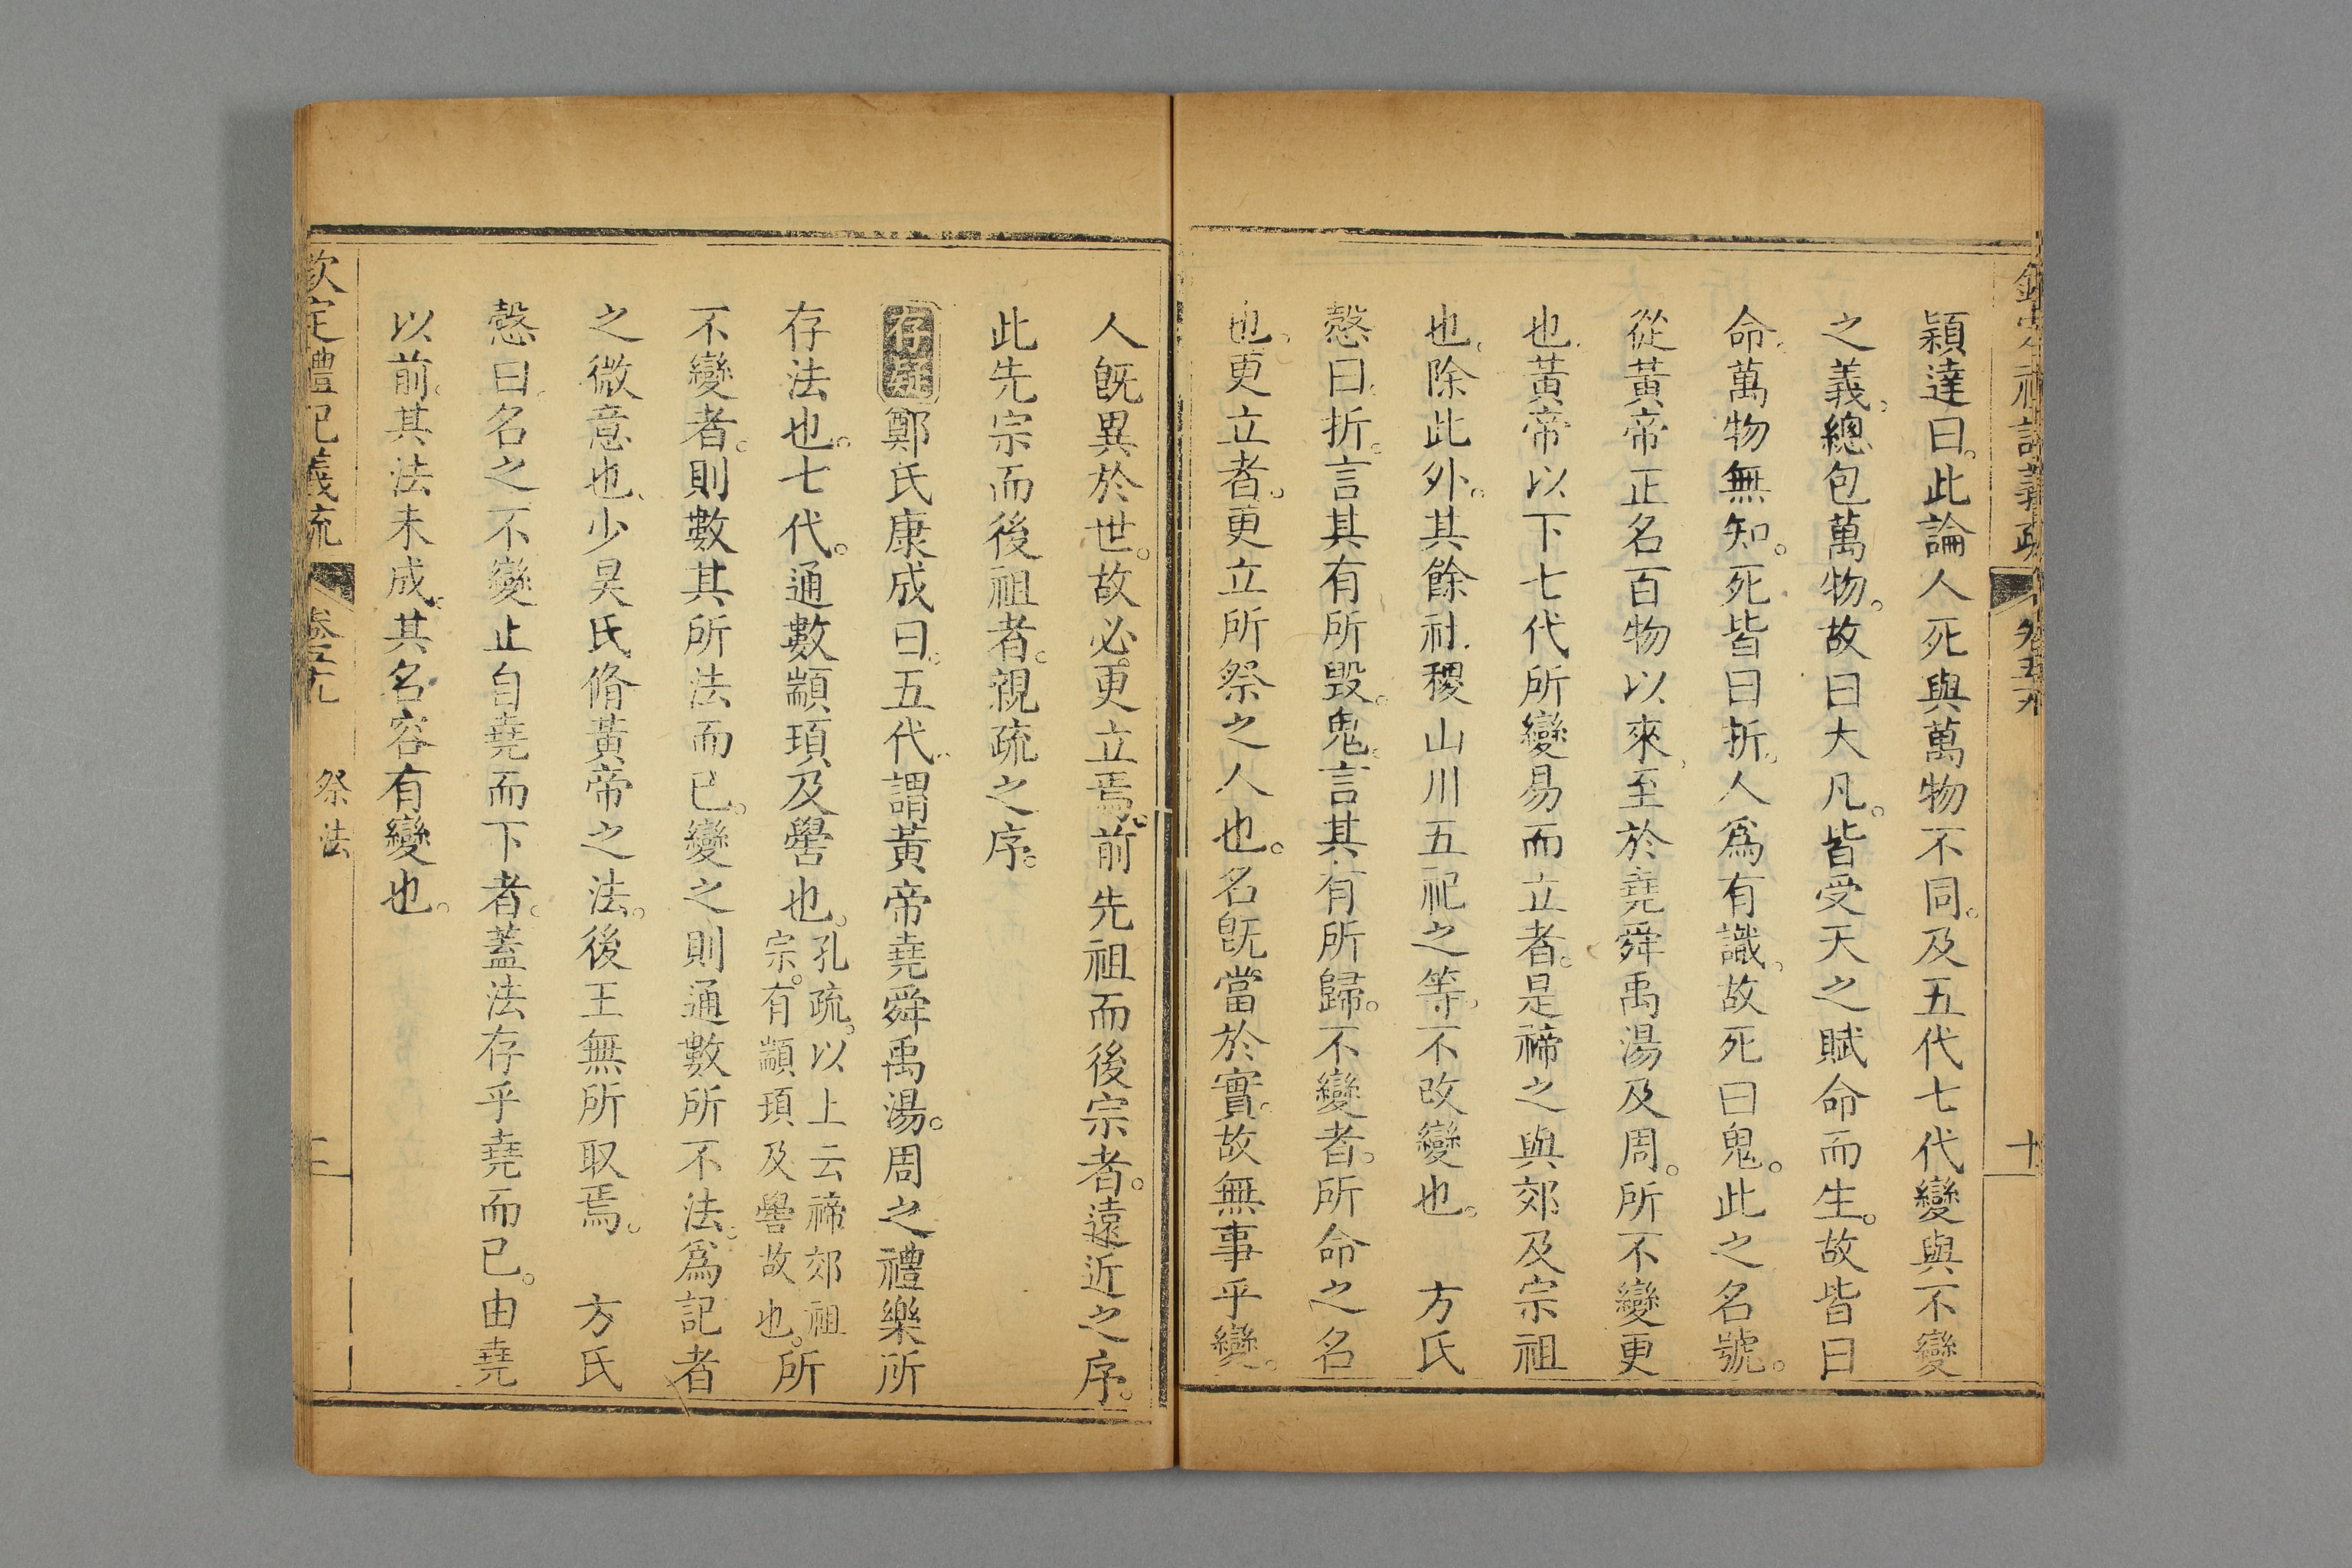 欽定禮記義疏 卷五十九 十
穎達曰。此論人死與萬物不同。及五代七代變與不變
之義。總包萬物。故曰大凡。皆受天之賦命而生。故皆曰
命。萬物無知。死皆曰折。人爲有識。故死曰鬼。此之名號。
從黃帝正名百物以來。至於堯舜禹湯及周。所不變更
也。黃帝以下七代所變易而立者。是禘之與郊及宗祖
也。除此外。其餘社稷山川五祀之等。不改變也。 方氏
慤曰。折。言其有所毀。鬼。言其有所歸。不變者。所命之名
也。更立者。更立所祭之人也。名旣當於實。故無事乎變。
人旣異於世。故必更立焉。前先祖而後宗者。遠近之序。
此先宗而後祖者。親疏之序。
存疑 鄭氏康成曰。五代。謂黃帝堯舜禹湯。周之禮樂所
存法也。七代。通數顓頊及嚳也。孔疏。以上云禘郊祖宗。有顓頊及嚳故也。所
不變者。則數其所法而已。變之則通數所不法。爲記者
之微意也。少昊氏脩黃帝之法。後王無所取焉。 方氏
慤曰。名之不變止自堯而下者。蓋法存乎堯而已。由堯
以前。其法未成。其名容有變也。
欽定禮記義疏 卷五十九 祭法